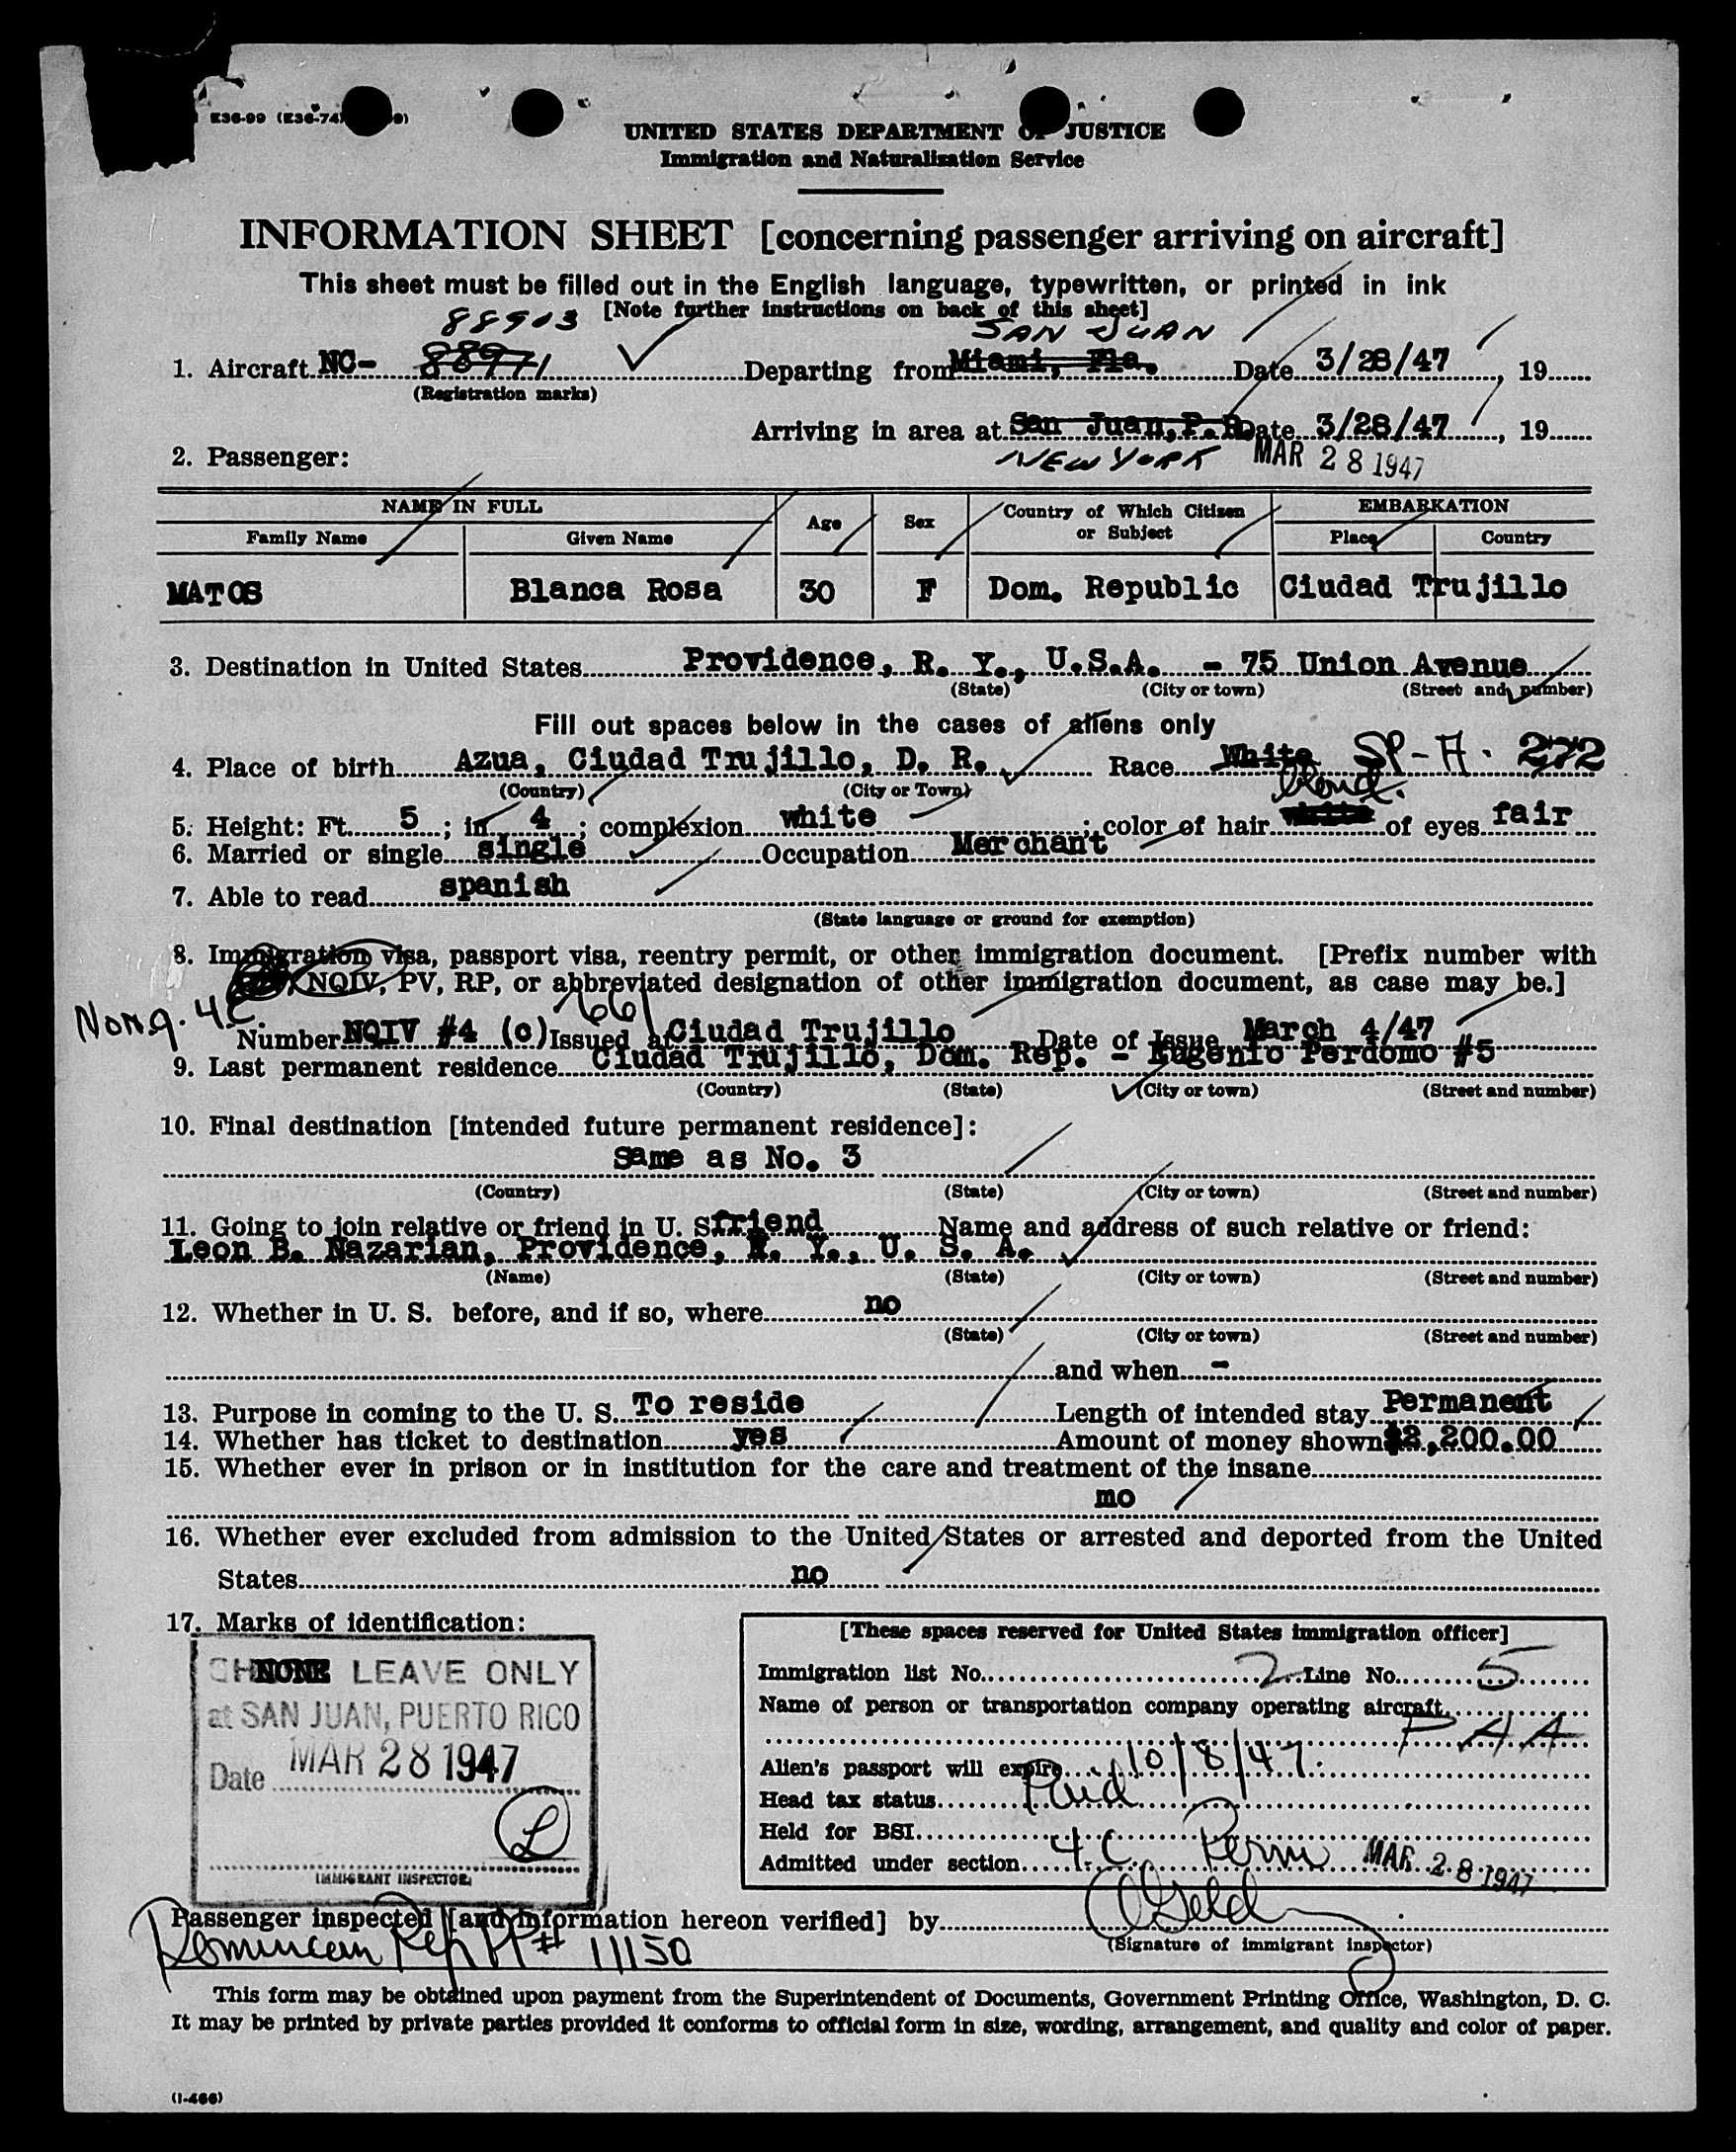 E36-99 (E36-74
UNITED STATES DEPARTMENT OF JUSTICE
Immigration and Naturalization Service
INFORMATION SHEET [concerning passenger arriving on aircraft]
This sheet must be filled out in the English language, typewritten, or printed in ink
[Note further instructions on back of this sheet]
88903 SAN JUAN
1. Aircraft NC- 88971 Departing from Miami, Fla. Date 3/28/47, 19
(Registration marks)
Arriving in area at San Juan, P. R. Date 3/28/47, 19
NEW YORK MAR 28 1947
2. Passenger:
NAME IN FULL Age Sex Country of Which Citizen or Subject EMBARKATION
Family Name Given Name Place Country
MATOS Blanca Rosa 30 F Dom. Republic Ciudad Trujillo
3. Destination in United States Providence, R. Y., U.S.A. - 75 Union Avenue
(State) (City or town) (Street and number)
Fill out spaces below in the cases of aliens only
4. Place of birth Azua, Ciudad Trujillo, D. R. Race White SP-H. 272
(Country) (City or Town) blond.
5. Height: Ft. 5; in. 4; complexion white; color of hair white of eyes fair
6. Married or single single Occupation Merchant
7. Able to read spanish
(State language or ground for exemption)
8. Immigration visa, passport visa, reentry permit, or other immigration document. [Prefix number with
NQIV, PV, RP, or abbreviated designation of other immigration document, as case may be.]
Nonq. 4C. 661
Number NQIV #4 (c) Issued at Ciudad Trujillo Date of Issue March 4/47
9. Last permanent residence Ciudad Trujillo, Dom. Rep. - Eugenio Perdomo #5
(Country) (State) (City or town) (Street and number)
10. Final destination [intended future permanent residence]:
Same as No. 3
(Country) (State) (City or town) (Street and number)
11. Going to join relative or friend in U. S. friend Name and address of such relative or friend:
Leon B. Nazarian, Providence, N. Y., U. S. A.
(Name) (State) (City or town) (Street and number)
12. Whether in U. S. before, and if so, where no
(State) (City or town) (Street and number)
and when -
13. Purpose in coming to the U. S. To reside Length of intended stay Permanent
14. Whether has ticket to destination yes Amount of money shown $2,200.00
15. Whether ever in prison or in institution for the care and treatment of the insane
mo
16. Whether ever excluded from admission to the United States or arrested and deported from the United
States no
17. Marks of identification:
NONE LEAVE ONLY
at SAN JUAN, PUERTO RICO
Date MAR 28 1947
L
IMMIGRANT INSPECTOR.
[These spaces reserved for United States immigration officer]
Immigration list No. 2 Line No. 5
Name of person or transportation company operating aircraft
PAA
Alien's passport will expire 10/8/47.
Head tax status Paid
Held for BSI
Admitted under section 4.C. Perm MAR 28 1947
Passenger inspected [and information hereon verified] by
Dominican Rep PP # 11150 (Signature of immigrant inspector)
This form may be obtained upon payment from the Superintendent of Documents, Government Printing Office, Washington, D. C.
It may be printed by private parties provided it conforms to official form in size, wording, arrangement, and quality and color of paper.
(I-466)